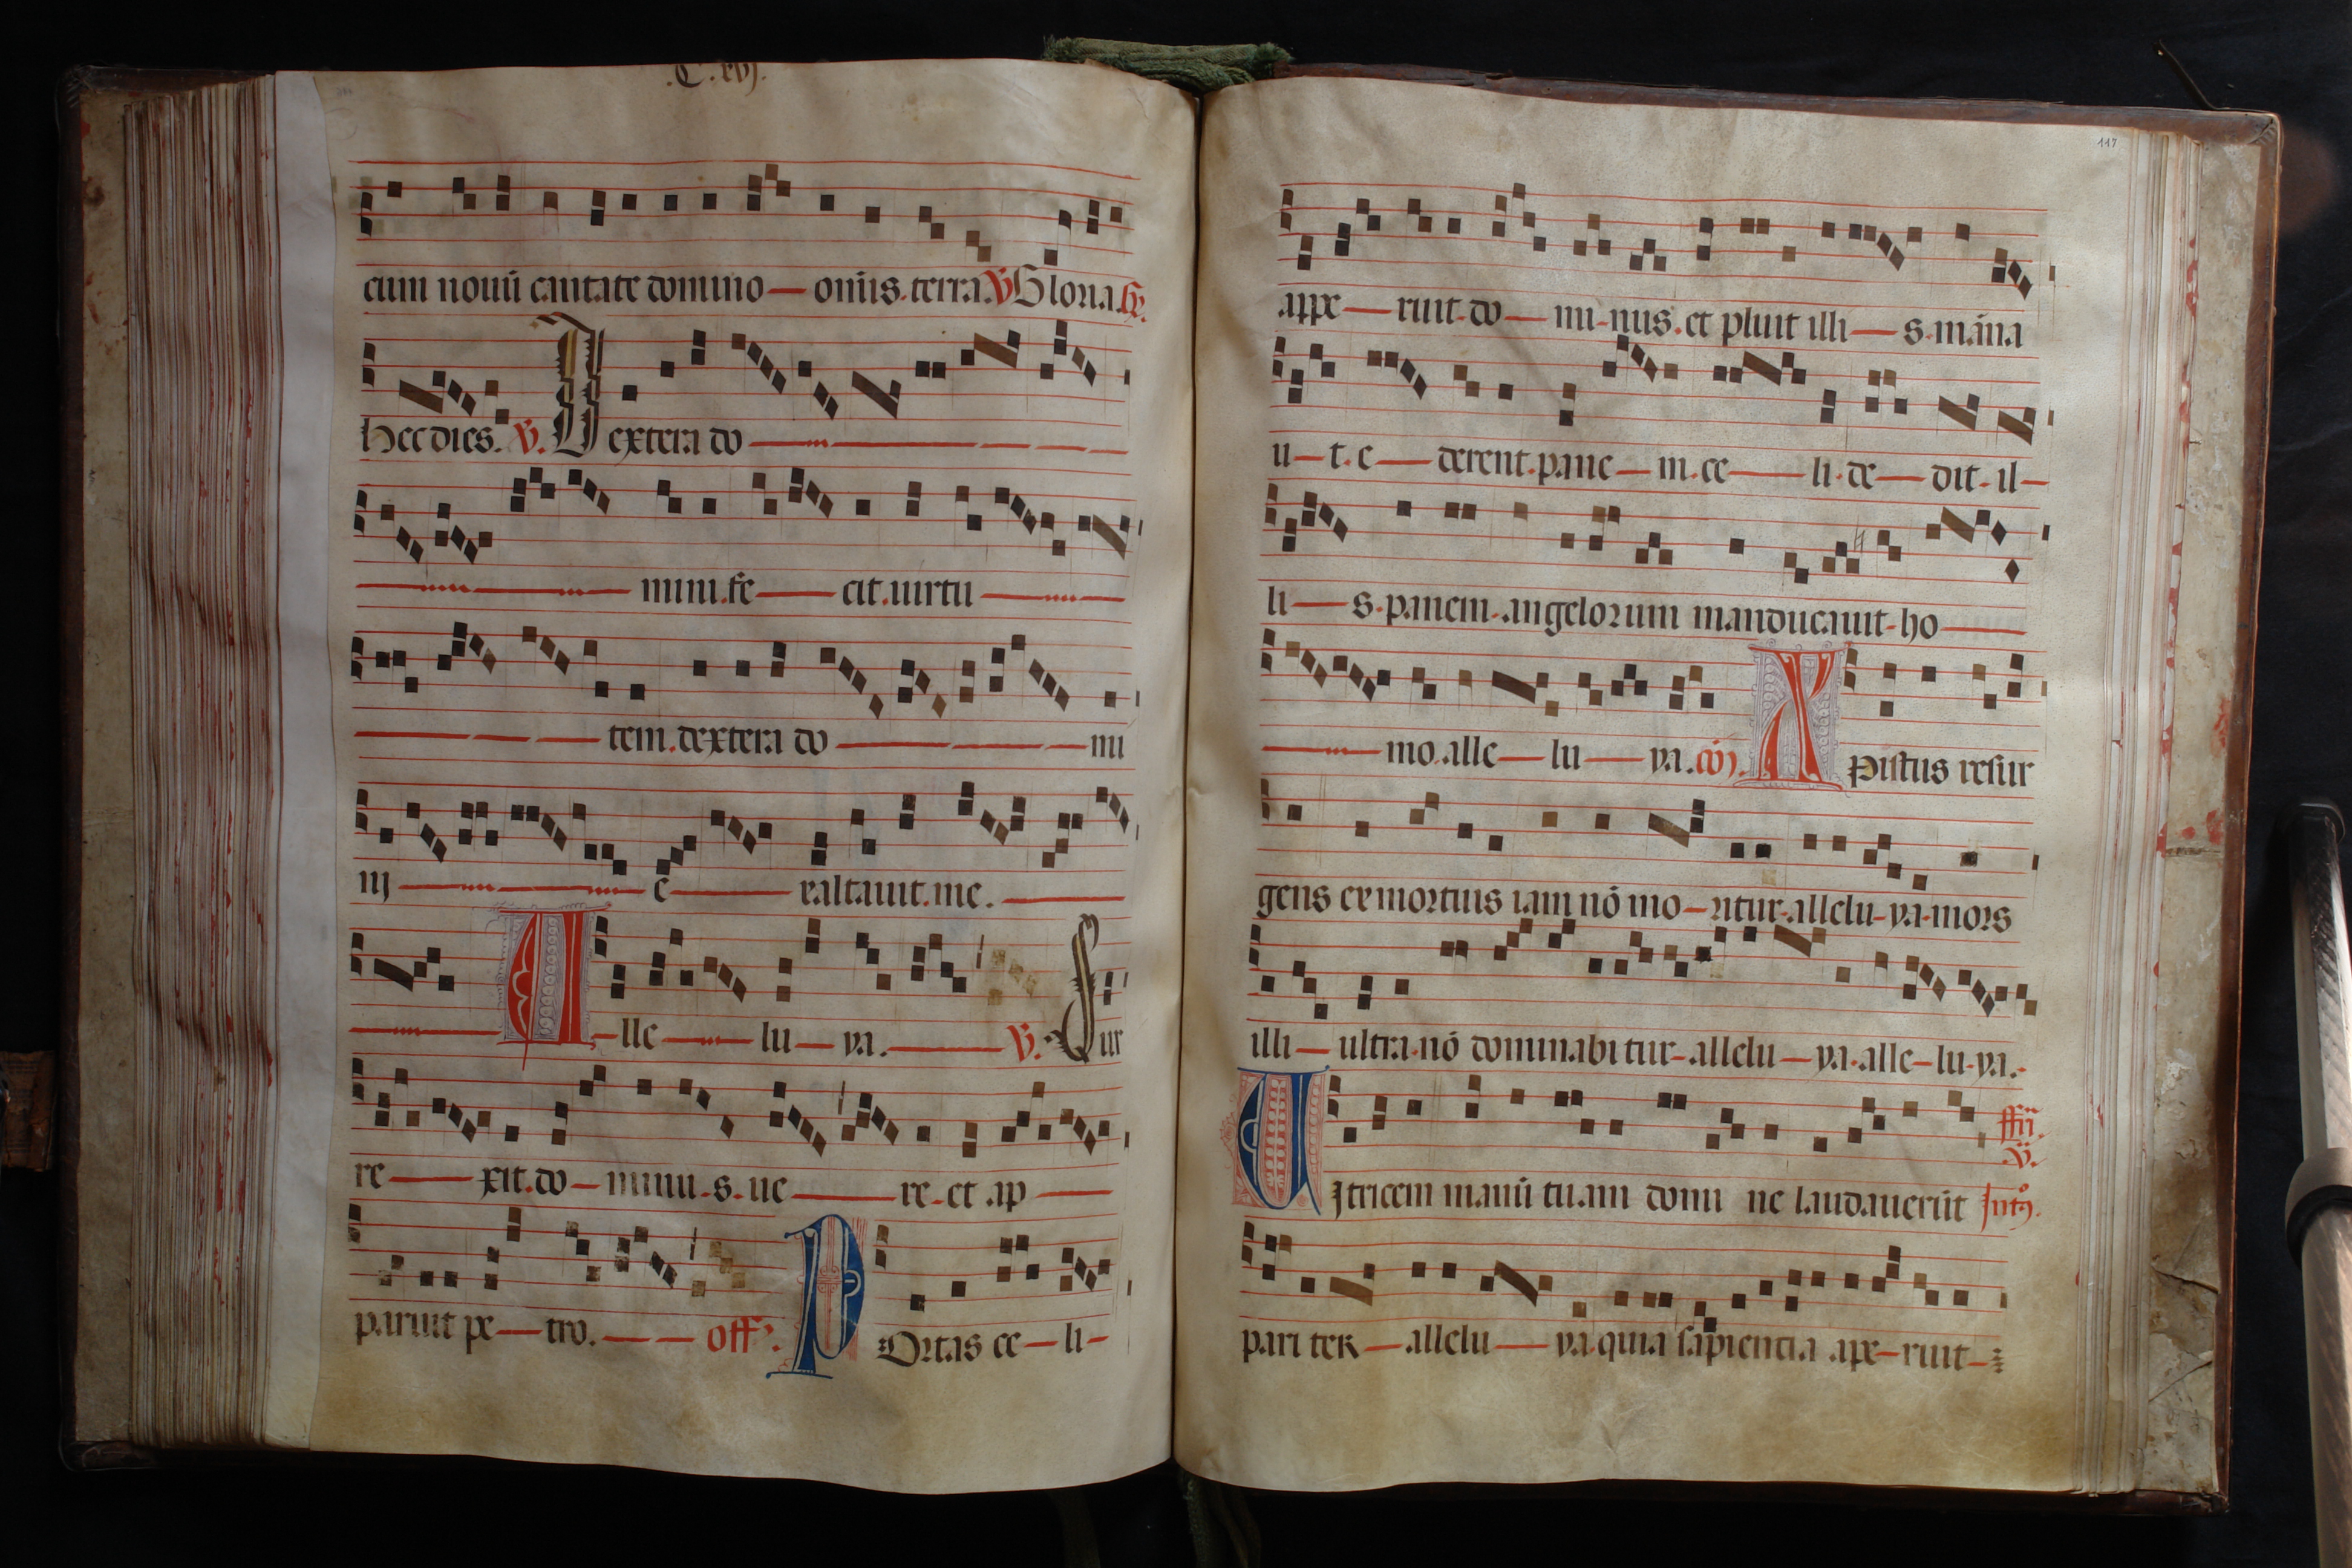 .C.xvj.
cum nouū cantate domino — omīs.terra.V Gloria.
hec dies. V. Dextera do
mini.fe — cit.uirtu
tem.dextera do — mi
nj — e — xaltauit.me.
Alle — lu — ya. — V. Sur
re — xit.do — minu-s.ue — re-et ap
paruit pe — tro. — off. POrtas ce — li-
117
appe — ruit-do — mi-nus.et pluit illi — s.māna
u-t.e — derent.pane — m.ce — li.de — dit-il-
li — s.panem-angelorum manducauit-ho
mo.alle — lu — ya. XPistus resur
gens ex mortuis iam nō mo-ritur-allelu-ya-mors
illi — ultra.nō dominabitur-allelu — ya.alle-lu-ya.
UIctricem manū tuam domi ne laudauerūt
pariter — allelu — ya.quia sapientia ape-ruit-